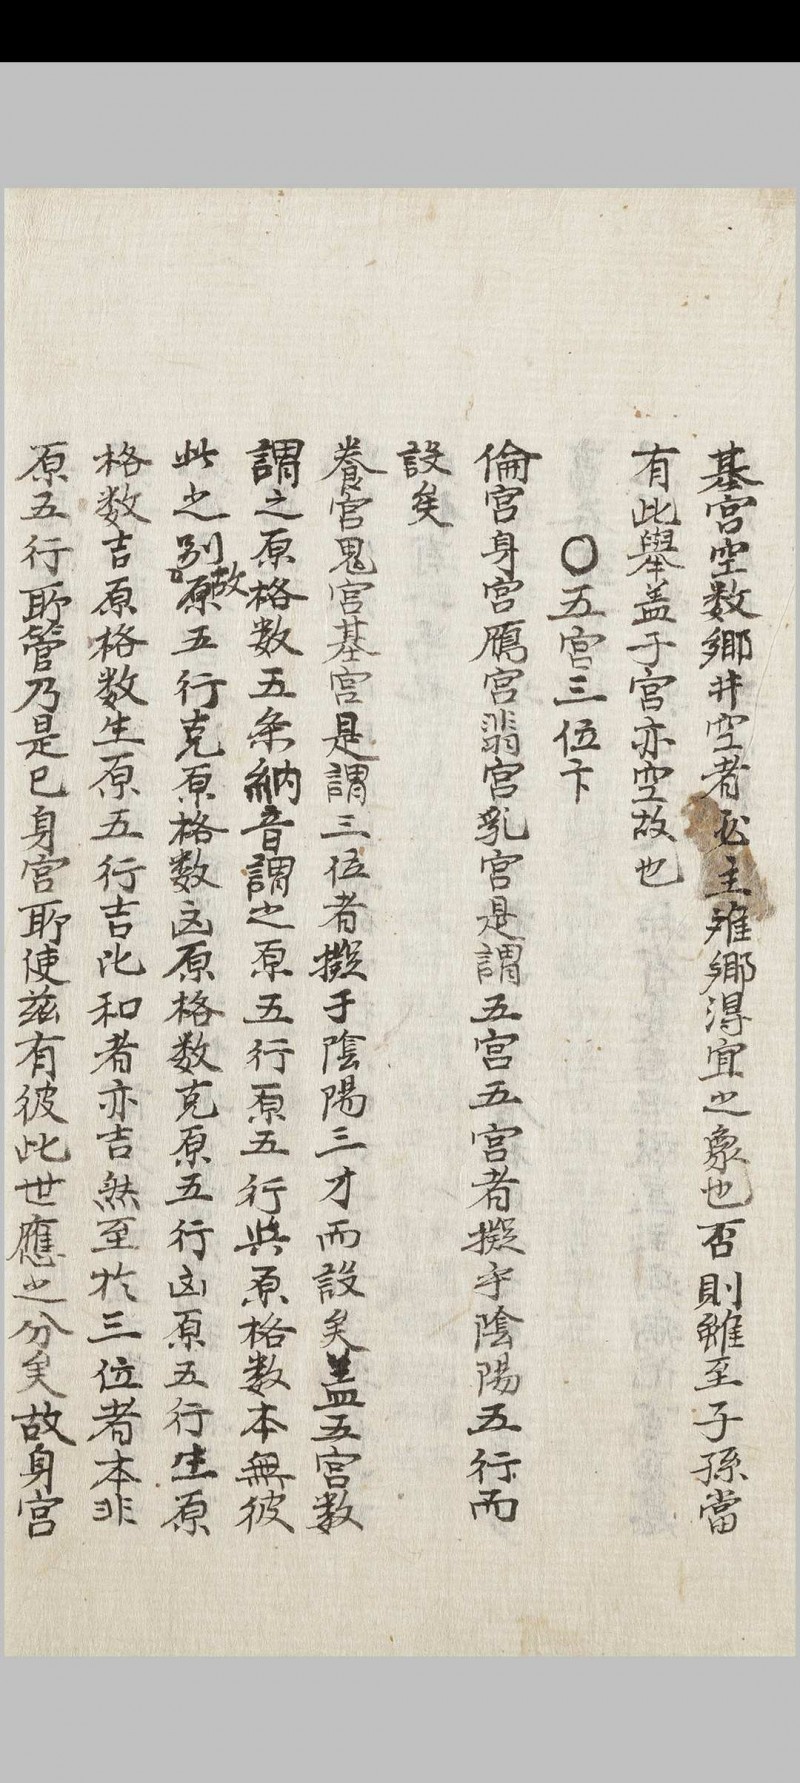 基宮空数郷井空者必主離郷得宜之象也否則雖至子孫當
有此舉盖子宮亦空故也
〇五宮三位卞
倫宮身宮鴈宮翡宮乳宮是謂五宮五宮者擬乎陰陽五行而
設矣
養宮鬼宮基宮是謂三位者擬于陰陽三才而設矣盖五宮数
謂之原格数五条納音謂之原五行原五行與原格数本無彼
此之別故原五行克原格数凶原格数克原五行凶原五行生原
格数吉原格数生原五行吉比和者亦吉然至於三位者本非
原五行所管乃是己身宮所使茲有彼此世應之分矣故身宮